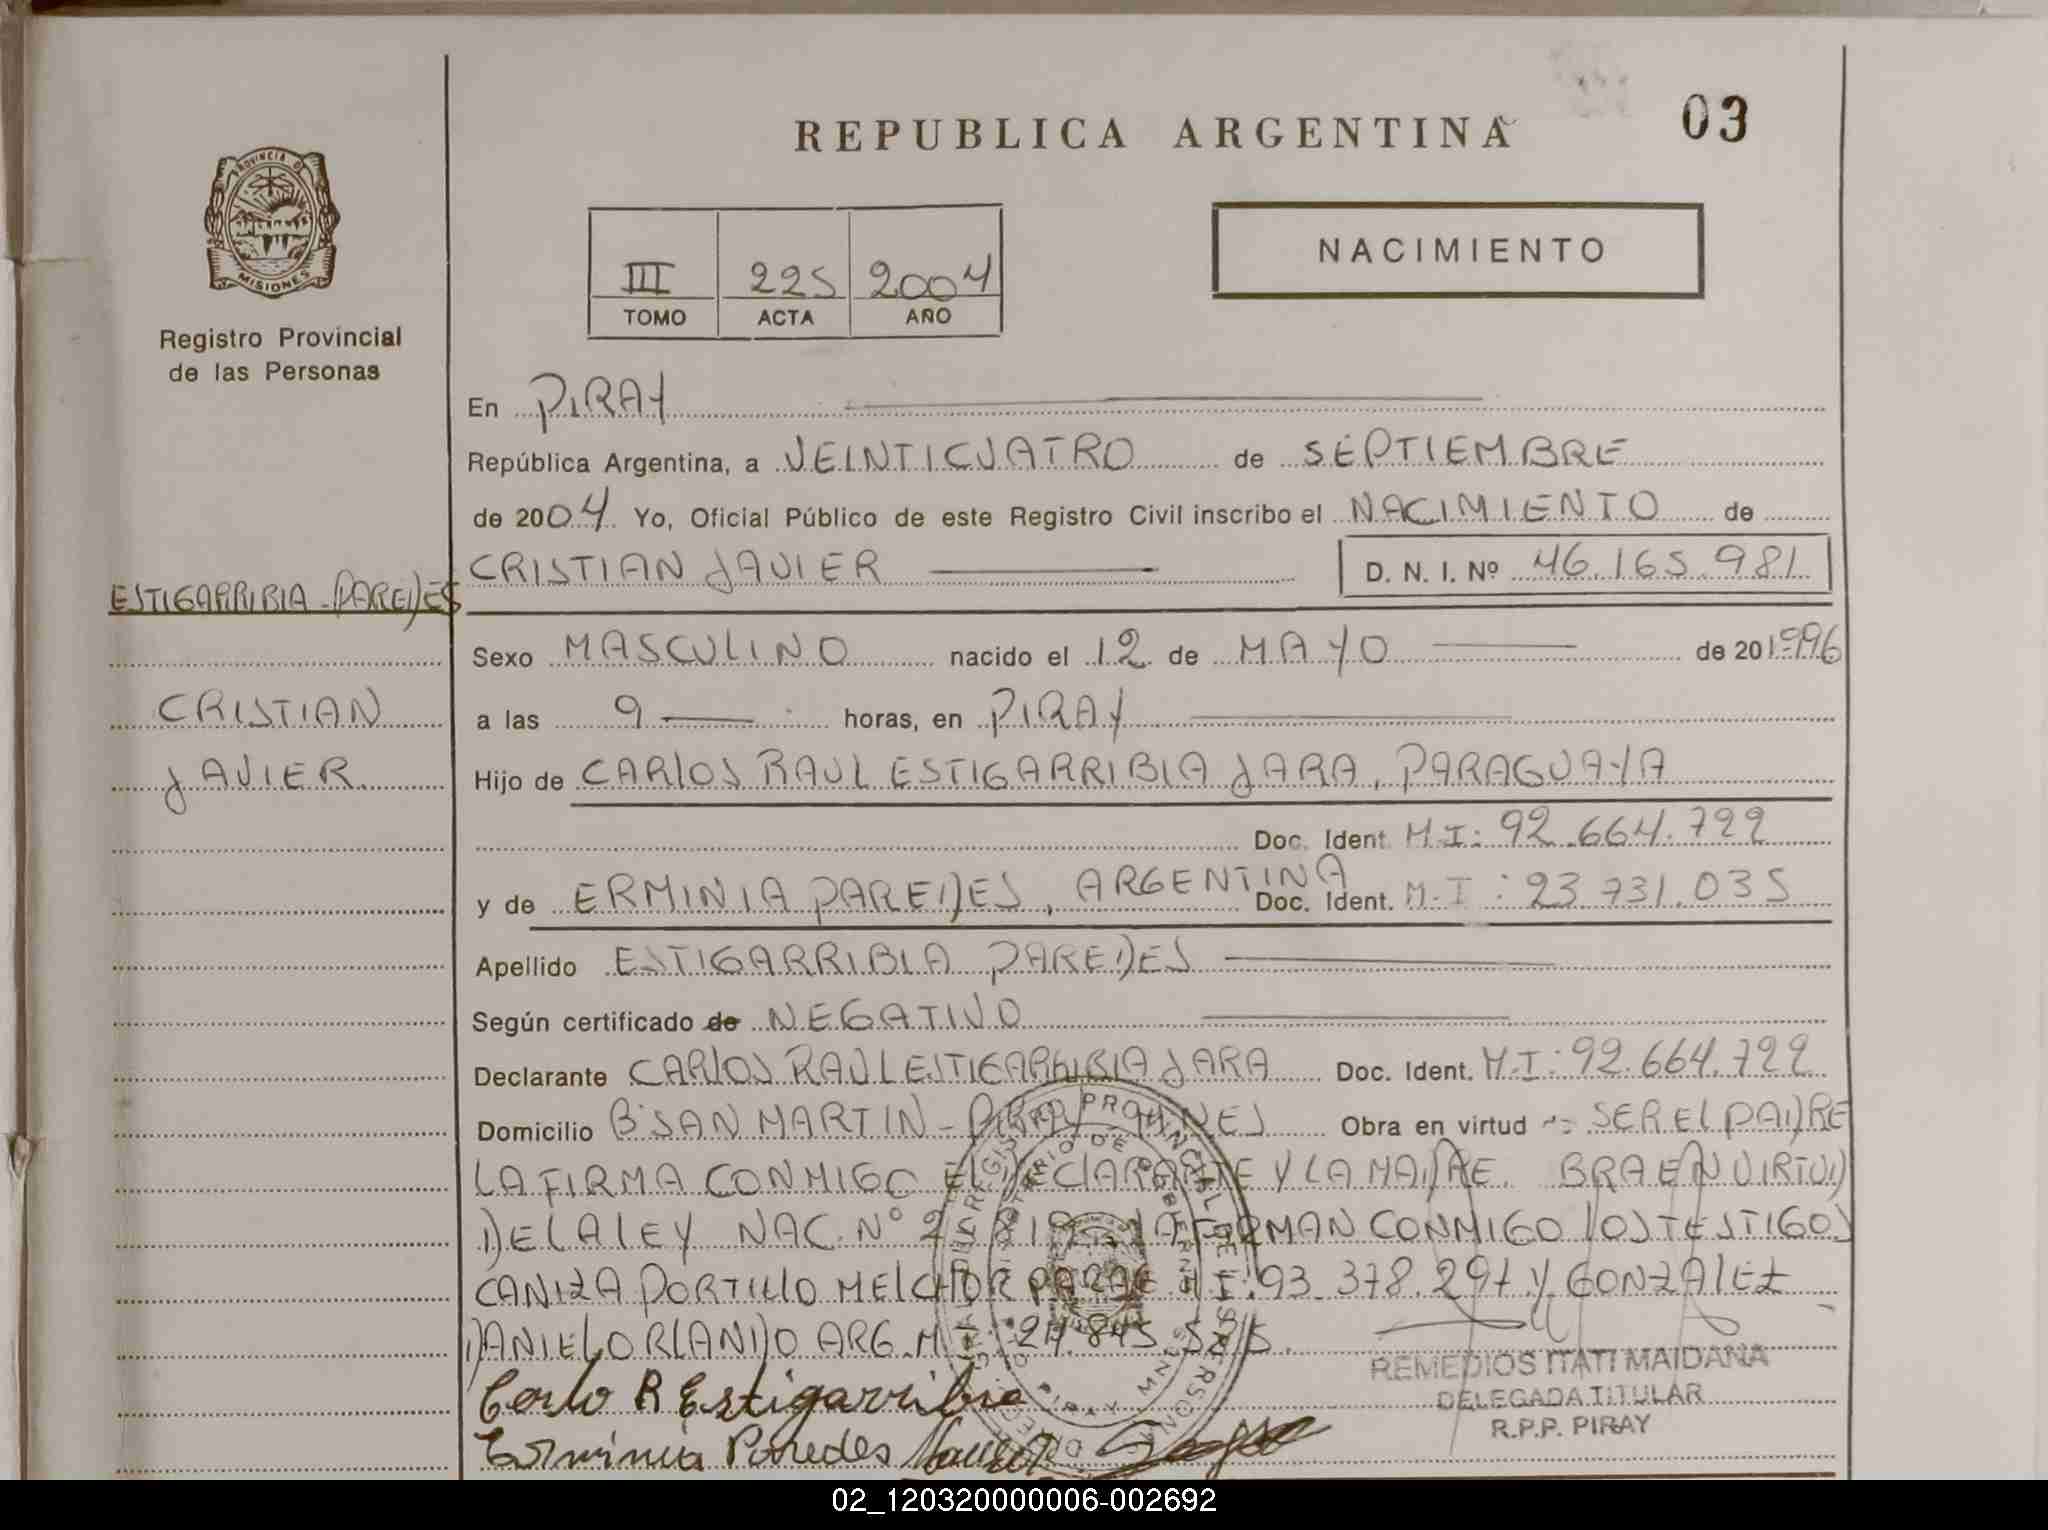 REPUBLICA ARGENTINA
03
PROVINCIA DE
MISIONES
Registro Provincial
de las Personas
III 225 2004
TOMO ACTA AÑO
NACIMIENTO
En PIRAY
República Argentina, a VEINTICUATRO de SEPTIEMBRE
de 2004 Yo, Oficial Público de este Registro Civil inscribo el NACIMIENTO de
CRISTIAN JAVIER D. N. I. Nº 46.165.981
ESTIGARRIBIA-PAREDES
CRISTIAN
JAVIER
Sexo MASCULINO nacido el 12 de MAYO de 20 1996
a las 9 horas, en PIRAY
Hijo de CARLOS RAUL ESTIGARRIBIA JARA, PARAGUAYA
Doc. Ident. M.I: 92.664.722
y de ERMINIA PAREDES, ARGENTINA Doc. Ident. M-I: 23.731.035
Apellido ESTIGARRIBIA PAREDES
Según certificado de NEGATIVO
Declarante CARLOS RAUL ESTIGARRIBIA JARA Doc. Ident. M-I: 92.664.722
Domicilio B°SAN MARTIN - PIRAY MNES Obra en virtud SER EL PADRE
LA FIRMA CONMIGO EL DECLARANTE Y LA MADRE. BRA EN VIRTUD
DE LA LEY NAC. N° FIRMAN CONMIGO LOS TESTIGOS
CANIZA PORTILLO MELCHOR PARAG M I: 93.378.297 Y GONZALEZ
DANIEL ORLANDO ARG. M I 24.845.525.
Carlo R Estigarribia
Erminia Paredes
REMEDIOS ITATI MAIDANA
DELEGADA TITULAR
R.P.P. PIRAY
02_120320000006-002692